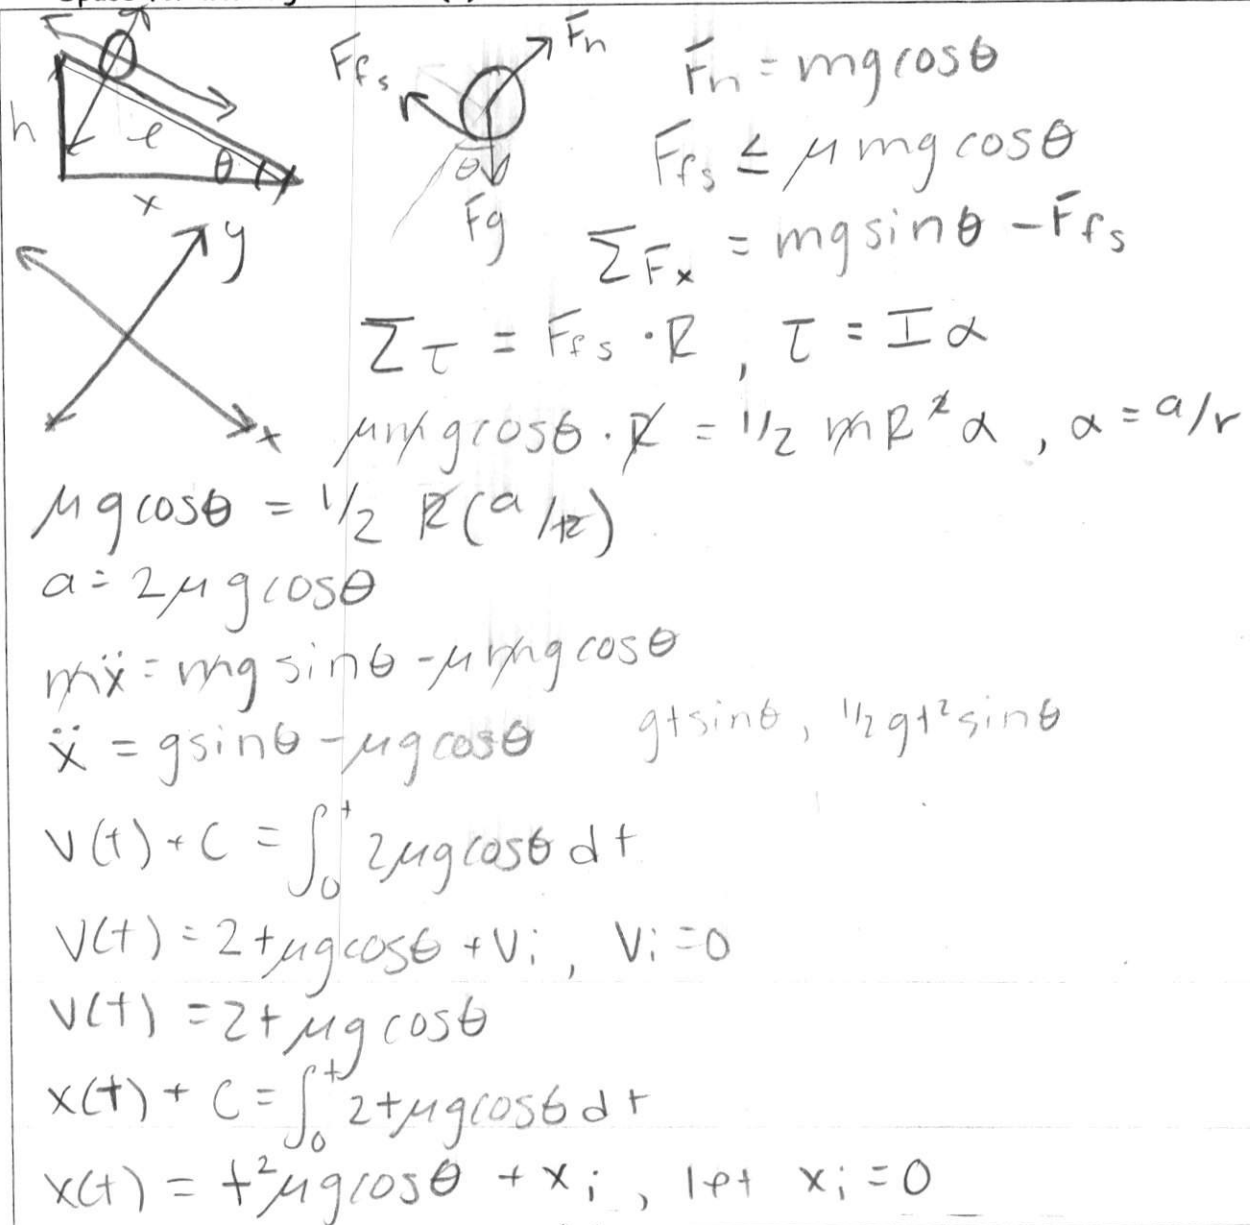 h
ℓ
θ
x
F_fs
F_n
θ
F_g
y
x
F_n = mg cosθ
F_fs ≤ μmg cosθ
ΣF_x = mg sinθ - F_fs
Στ = F_fs · R , τ = Iα
μmg cosθ · R = 1/2 mR²α , α = a/r
μg cosθ = 1/2 R(a/R)
a = 2μg cosθ
mẍ = mg sinθ - μmg cosθ
ẍ = g sinθ - μg cosθ gt sinθ, 1/2 gt² sinθ
v(t) + C = ∫₀ᵗ 2μg cosθ dt
v(t) = 2tμg cosθ + v_i , v_i = 0
v(t) = 2tμg cosθ
x(t) + C = ∫₀ᵗ 2tμg cosθ dt
x(t) = t²μg cosθ + x_i , let x_i = 0